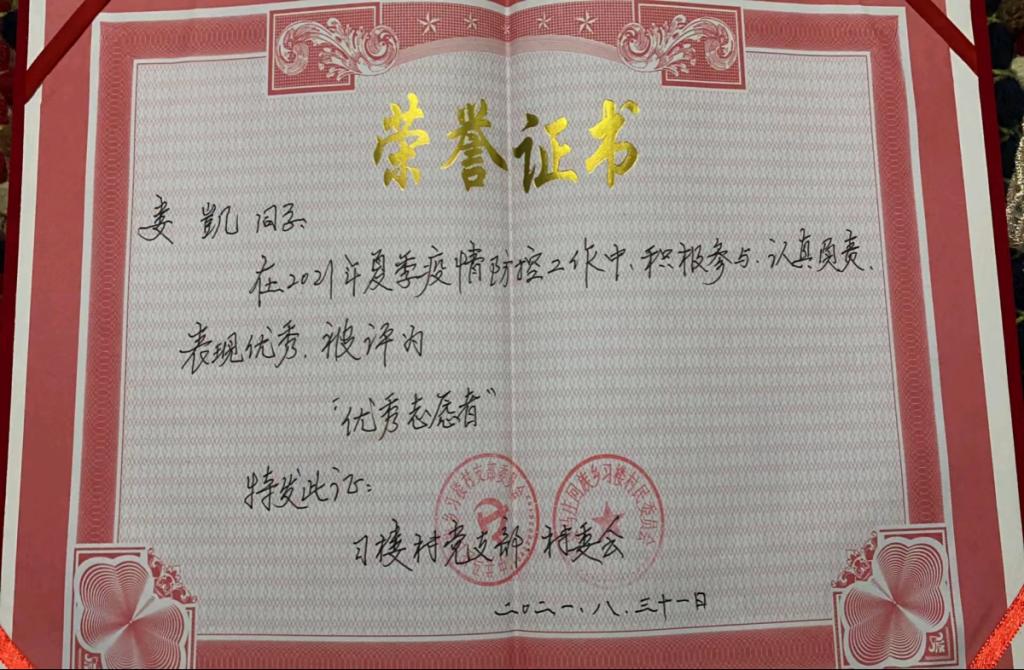 荣誉证书
娄凱同志
在2021年夏季疫情防控工作中、积极参与、认真负责、
表现优秀、被评为
"优秀志愿者"
特发此证:
习楼村党支部 村委会
二〇二一、八、三十一日
乡习楼村支部委员会
马庄回族乡习楼村民委员会